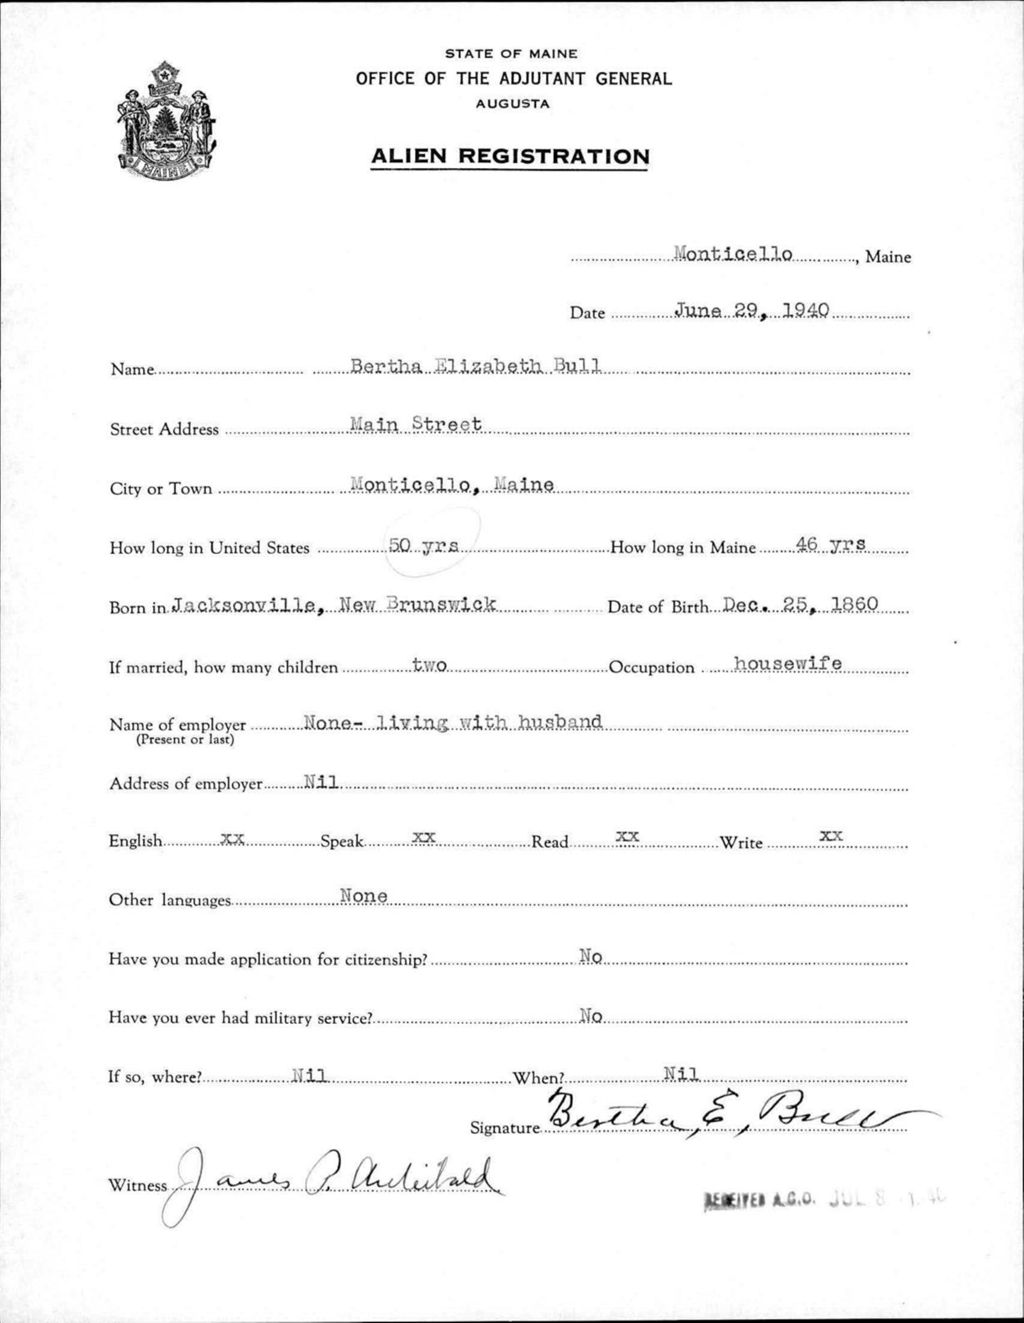 STATE OF MAINE
OFFICE OF THE ADJUTANT GENERAL
AUGUSTA
ALIEN REGISTRATION
MAINE
Monticello, Maine
Date June 29, 1940
Name Bertha Elizabeth Bull
Street Address Main Street
City or Town Monticello, Maine
How long in United States 50 yrs How long in Maine 46 yrs
Born in Jacksonville, New Brunswick Date of Birth Dec. 25, 1860
If married, how many children two Occupation housewife
Name of employer None- living with husband
(Present or last)
Address of employer Nil
English xx Speak xx Read xx Write xx
Other languages None
Have you made application for citizenship? No
Have you ever had military service? No
If so, where? Nil When? Nil
Signature Bertha, E, Bull
Witness James P. Archibald
RECEIVED A.G.O. JUL 8